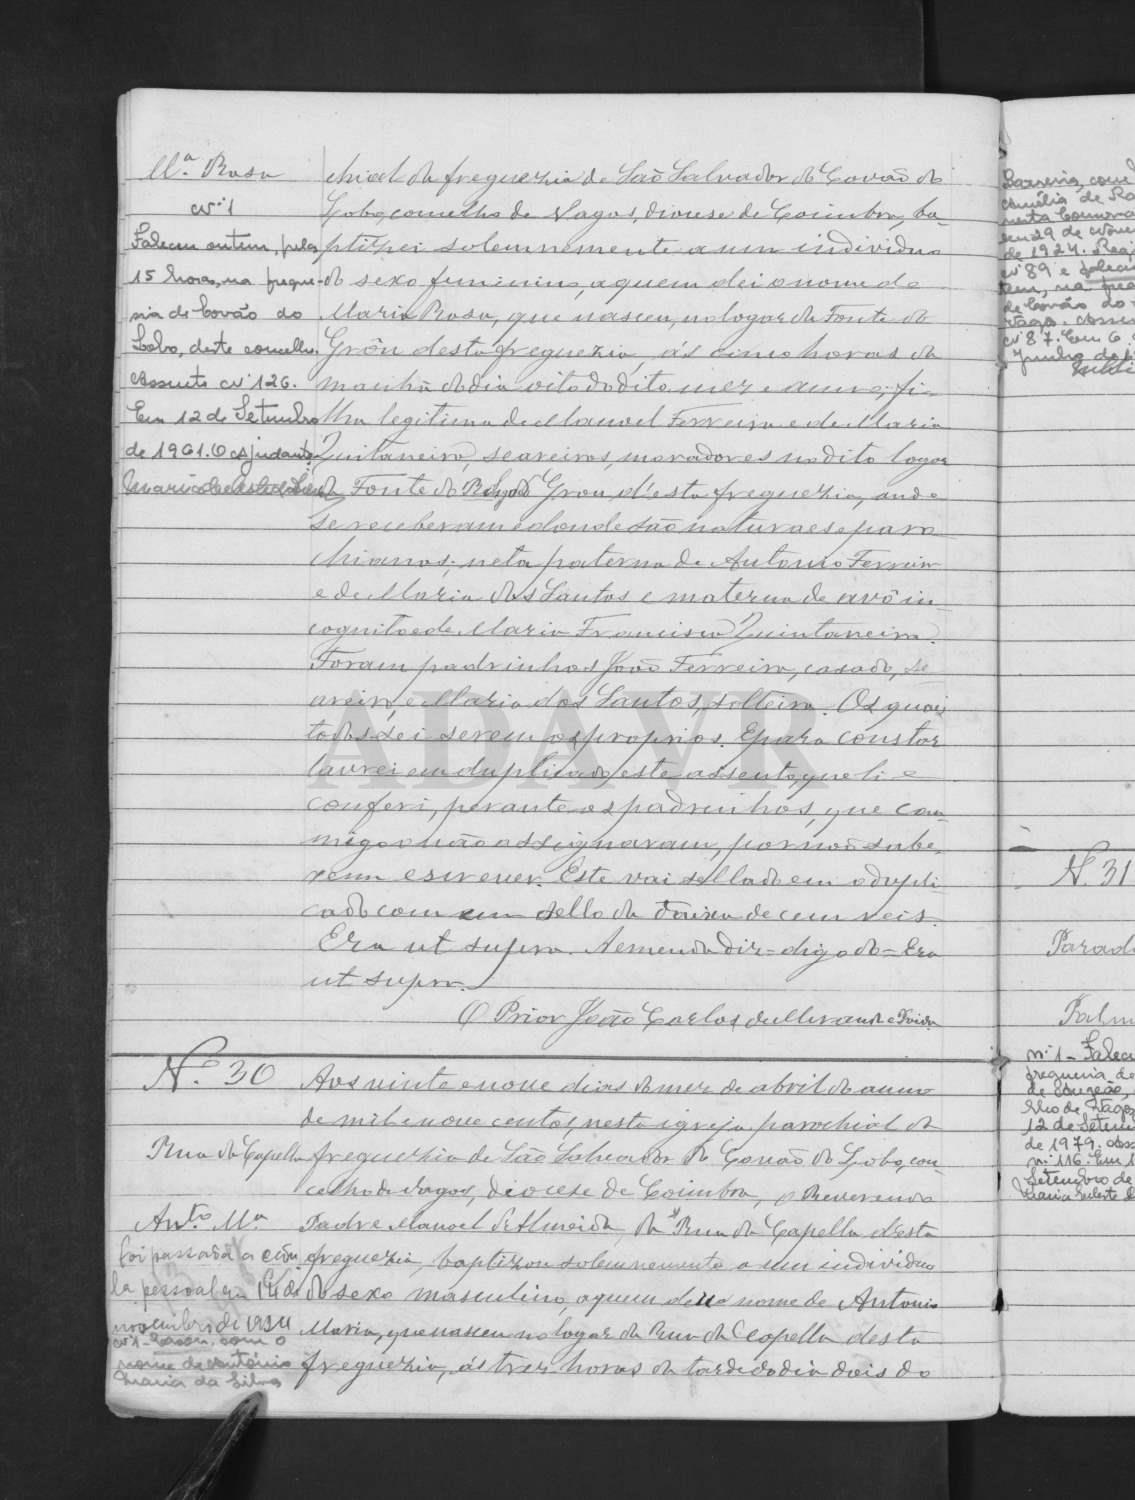 Mª. Rosa
Nº 1
Faleceu ontem, pelas
15 horas, na fregue-
sia de Covão do
Lobo, deste concelho.
Assento Nº 126.
Em 12 de Setembro
de 1961. O Ajudante
chial da freguezia de São Salvador do Covão do
Lobo, concelho de Vagos, diocese de Coimbra, ba-
ptizei solemnemente a um individuo
do sexo feminino, a quem dei o nome de
Maria Rosa, que nasceu, no logar da Fonte do
Grou desta freguezia, ás cinco horas da
manhã do dia oito do dito mez e anno, fi-
lha legitima de Manoel Ferreira e de Maria
Quintaneira, seareiros, moradores no dito logar
da Fonte do Grou, d'esta freguezia, onde
se receberam e donde são naturaes e paro
chianos; neta paterna de Antonio Ferreira
e de Maria dos Santos e materna de avô in-
cognito e de Maria Francisca Quintaneira.
Foram padrinhos João Ferreira, casado, se
areiro, e Maria dos Santos, solteira. Os quaes
todos sei serem os proprios. E para constar
lavrei em duplicado este assento, que li e
conferi, perante os padrinhos, que com-
migo não assignaram, por não sabe-
rem escrever. Este vai sellado em o dupli
cado com um sello da taixa de cem reis.
Era ut supra. A emenda diz = digo do = Era
ut supra.
O Prior João Carlos
Nº. 30
Rua da Capella
Antº. Mª.
foi passada a cédu
la pessoal em 14 de
novembro de 1934
Nº 1 - Casou, com o
nome de António
Maria da Silva
Aos vinte e nove dias do mez de abril do anno
de mil e nove centos, nesta igreja parochial da
freguezia de São Salvador do Covão do Lobo, con-
celho de Vagos, diocese de Coimbra, o Reverendo
Padre Manoel d'Almeida, da Rua da Capella d'esta
freguezia, baptizou solemnemente a um individuo
do sexo masculino, a quem deu o nome de Antonio
Maria, que nasceu no logar da Rua da Capella desta
freguezia, ás trez horas da tarde do dia dois do
Barreira, com
nesta Conserva
em 29 de
de 1924. Reg
Nº 89 e faleceu
tem, na freg
de Covão do
Vagos. Assen
Nº 87. Em 6
Junho de
N. 31
Parada
nº 1 - Faleceu
freguesia de
lho de Vagos
12 de Setem
de 1979. Ass
nº 116. Em 1
Setembro de
ADAVR